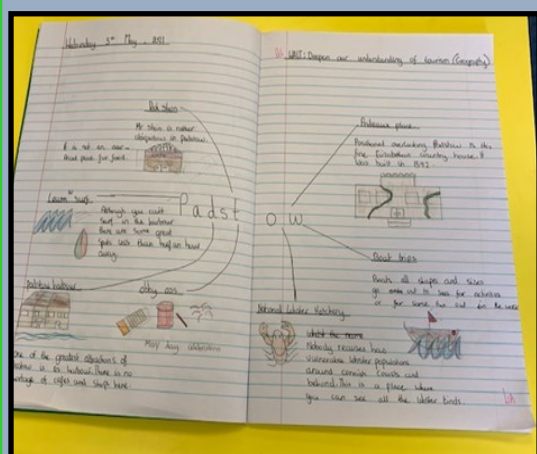 Wednesday 3rd May
WALT: Deepen our understanding of tourism (Geography)
Rick Stein
Mr Stein is rather
ubiquitous in Padstow.
It is not an over-
priced place for food.
Learn to surf
Although you can't
surf in the harbour
there are some great
spots less than half an hour
away.
Padst
Padstow harbour
One of the greatest attractions of
Padstow is its harbour. There is no
shortage of cafes and shops here.
Obby oss
May day celebration
ow
Prideaux place
Positioned overlooking Padstow is this
fine Elizabethan country house. It
was built in 1592
Boat trips
Boats all shapes and sizes
go out to sea for activities
or for some
National lobster Hatchery
Nobody rescues has
vulnerable lobster populations
around cornish Coasts and
beyond. This is a place where
you can see all the lobster